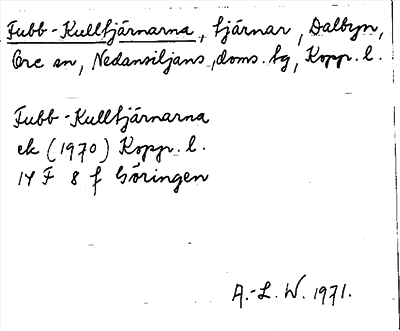 Fubb-Kulltjärnarna, tjärnar, Dalbyn,
Ore sn, Nedansiljans doms. tg, Kopp. l.
Fubb-Kulltjärnarna
ek (1970) Kopp. l.
14 F 8 f Göringen
A.-L. W. 1971.